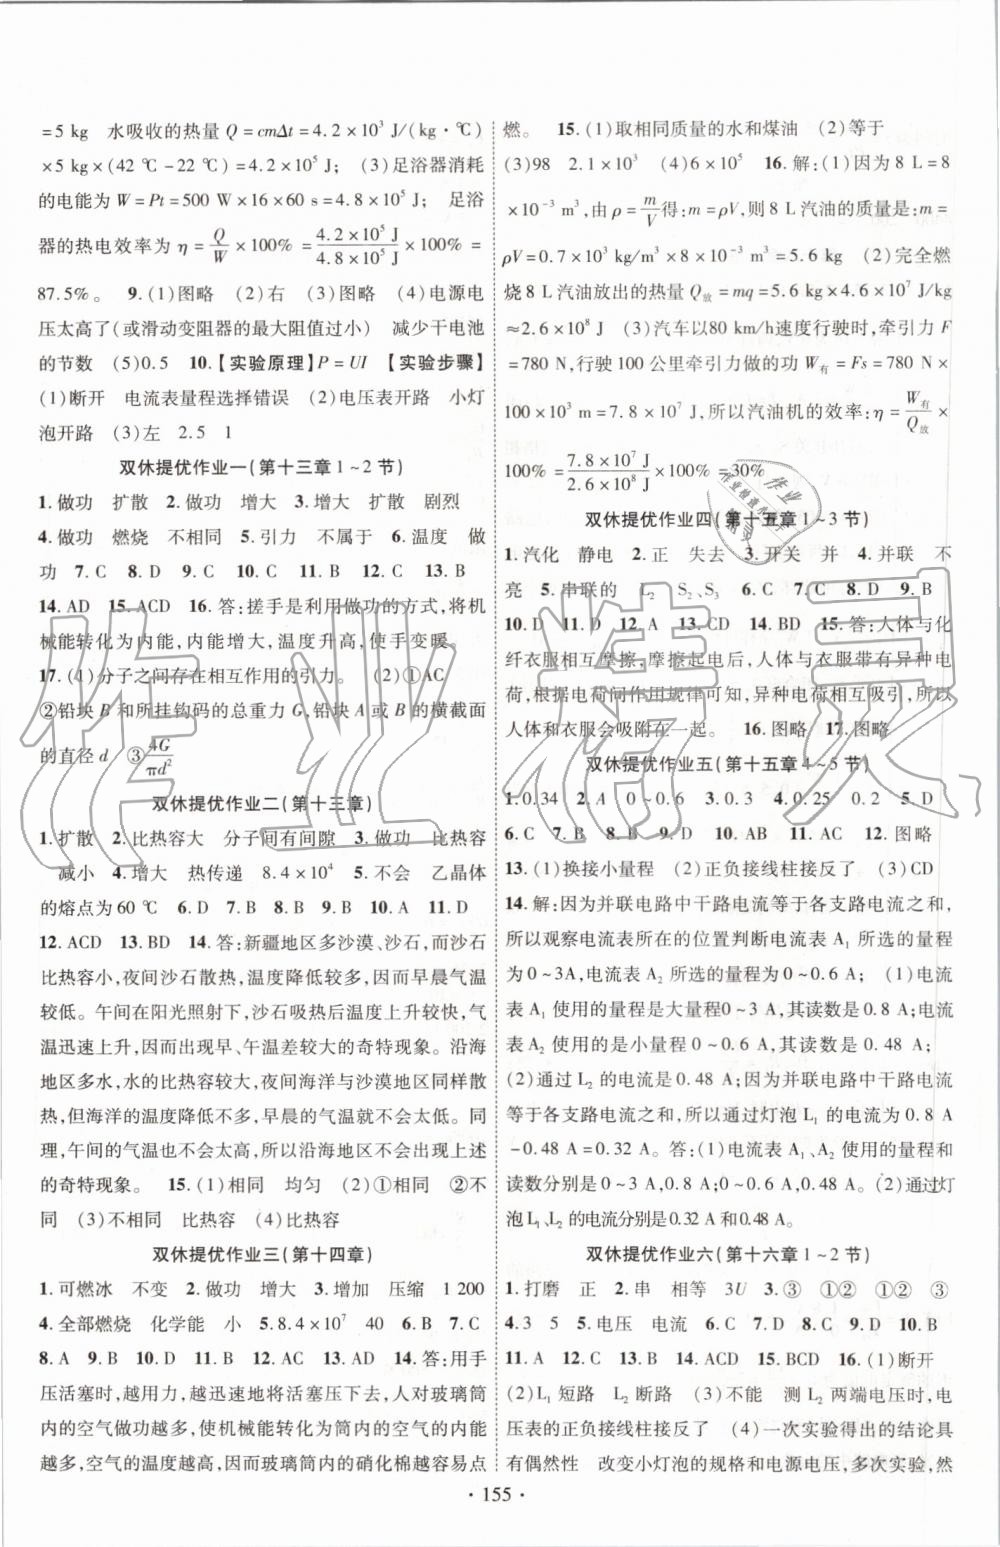 =5 kg 水吸收的热量 Q=cmΔt=4.2×10³ J/(kg·℃)
×5 kg×(42 ℃-22 ℃)=4.2×10⁵ J; (3)足浴器消耗
的电能为 W=Pt=500 W×16×60 s=4.8×10⁵ J; 足浴
器的热电效率为 η=Q/W×100%=4.2×10⁵ J/4.8×10⁵ J×100%=
87.5%。 9.(1)图略 (2)右 (3)图略 (4)电源电
压太高了(或滑动变阻器的最大阻值过小) 减少干电池
的节数 (5)0.5 10.【实验原理】P=UI 【实验步骤】
(1)断开 电流表量程选择错误 (2)电压表开路 小灯
泡开路 (3)左 2.5 1
双休提优作业一(第十三章1~2节)
1.做功 扩散 2.做功 增大 3.增大 扩散 剧烈
4.做功 燃烧 不相同 5.引力 不属于 6.温度 做
功 7.C 8.D 9.C 10.C 11.B 12.C 13.B
14.AD 15.ACD 16.答:搓手是利用做功的方式,将机
械能转化为内能,内能增大,温度升高,使手变暖。
17.(1)分子之间存在相互作用的引力。 (2)①AC
②铅块 B 和所挂钩码的总重力 G,铅块 A 或 B 的横截面
的直径 d ③4G/πd²
双休提优作业二(第十三章)
1.扩散 2.比热容大 分子间有间隙 3.做功 比热容
减小 4.增大 热传递 8.4×10⁴ 5.不会 乙晶体
的熔点为60 ℃ 6.D 7.B 8.B 9.D 10.A 11.D
12.ACD 13.BD 14.答:新疆地区多沙漠、沙石,而沙石
比热容小,夜间沙石散热,温度降低较多,因而早晨气温
较低。午间在阳光照射下,沙石吸热后温度上升较快,气
温迅速上升,因而出现早、午温差较大的奇特现象。沿海
地区多水,水的比热容较大,夜间海洋与沙漠地区同样散
热,但海洋的温度降低不多,早晨的气温就不会太低。同
理,午间的气温也不会太高,所以沿海地区不会出现上述
的奇特现象。 15.(1)相同 均匀 (2)①相同 ②不
同 (3)不相同 比热容 (4)比热容
双休提优作业三(第十四章)
1.可燃冰 不变 2.做功 增大 3.增加 压缩 1 200
4.全部燃烧 化学能 小 5.8.4×10⁷ 40 6.B 7.C
8.A 9.B 10.D 11.D 12.AC 13.AD 14.答:用手
压活塞时,越用力,越迅速地将活塞压下去,人对玻璃筒
内的空气做功越多,使机械能转化为筒内的空气的内能
越多,空气的温度越高,因而玻璃筒内的硝化棉越容易点
燃。 15.(1)取相同质量的水和煤油 (2)等于
(3)98 2.1×10³ (4)6×10⁵ 16.解:(1)因为8 L=8
×10⁻³ m³,由 ρ=m/V得:m=ρV,则8 L汽油的质量是:m=
ρV=0.7×10³ kg/m³×8×10⁻³ m³=5.6 kg (2)完全燃
烧8 L汽油放出的热量 Q放=mq=5.6 kg×4.6×10⁷ J/kg
≈2.6×10⁸ J (3)汽车以80 km/h速度行驶时,牵引力 F
=780 N,行驶100公里牵引力做的功 W有=Fs=780 N×
100×10³ m=7.8×10⁷ J,所以汽油机的效率:η=W有/Q放×
100%=7.8×10⁷ J/2.6×10⁸ J×100%=30%
双休提优作业四(第十五章1~3节)
1.汽化 静电 2.正 失去 3.开关 并 4.并联 不
亮 5.串联的 L₂ S₂、S₃ 6.C 7.D 8.C 9.B
10.D 11.D 12.A 13.CD 14.BD 15.答:人体与化
纤衣服相互摩擦,摩擦起电后,人体与衣服带有异种电
荷,根据电荷间作用规律可知,异种电荷相互吸引,所以
人体和衣服会吸附在一起。 16.图略 17.图略
双休提优作业五(第十五章4~5节)
1.0.34 2.A 0~0.6 3.0.3 4.0.25 0.2 5.D
6.C 7.B 8.B 9.D 10.AB 11.AC 12.图略
13.(1)换接小量程 (2)正负接线柱接反了 (3)CD
14.解:因为并联电路中干路电流等于各支路电流之和,
所以观察电流表所在的位置判断电流表 A₁ 所选的量程
为0~3A,电流表 A₂ 所选的量程为0~0.6 A; (1)电流
表 A₁ 使用的量程是大量程0~3 A,其读数是0.8 A;电流
表 A₂ 使用的是小量程0~0.6 A,其读数是0.48 A;
(2)通过 L₂ 的电流是0.48 A;因为并联电路中干路电流
等于各支路电流之和,所以通过灯泡 L₁ 的电流为0.8 A
-0.48 A=0.32 A。答:(1)电流表 A₁、A₂ 使用的量程和
读数分别是0~3 A,0.8 A;0~0.6 A,0.48 A。(2)通过灯
泡 L₁、L₂ 的电流分别是0.32 A和0.48 A。
双休提优作业六(第十六章1~2节)
1.打磨 正 2.串 相等 3U 3.③ ①② ①② ③
4.3 5 5.电压 电流 6.C 7.D 8.C 9.D 10.B
11.A 12.C 13.C 14.ACD 15.BCD 16.(1)断开
(2)L₁ 短路 L₂ 断路 (3)不能 测 L₂ 两端电压时,电
压表的正负接线柱接反了 (4)一次实验得出的结论具
有偶然性 改变小灯泡的规格和电源电压,多次实验,然
· 155 ·
作业精灵